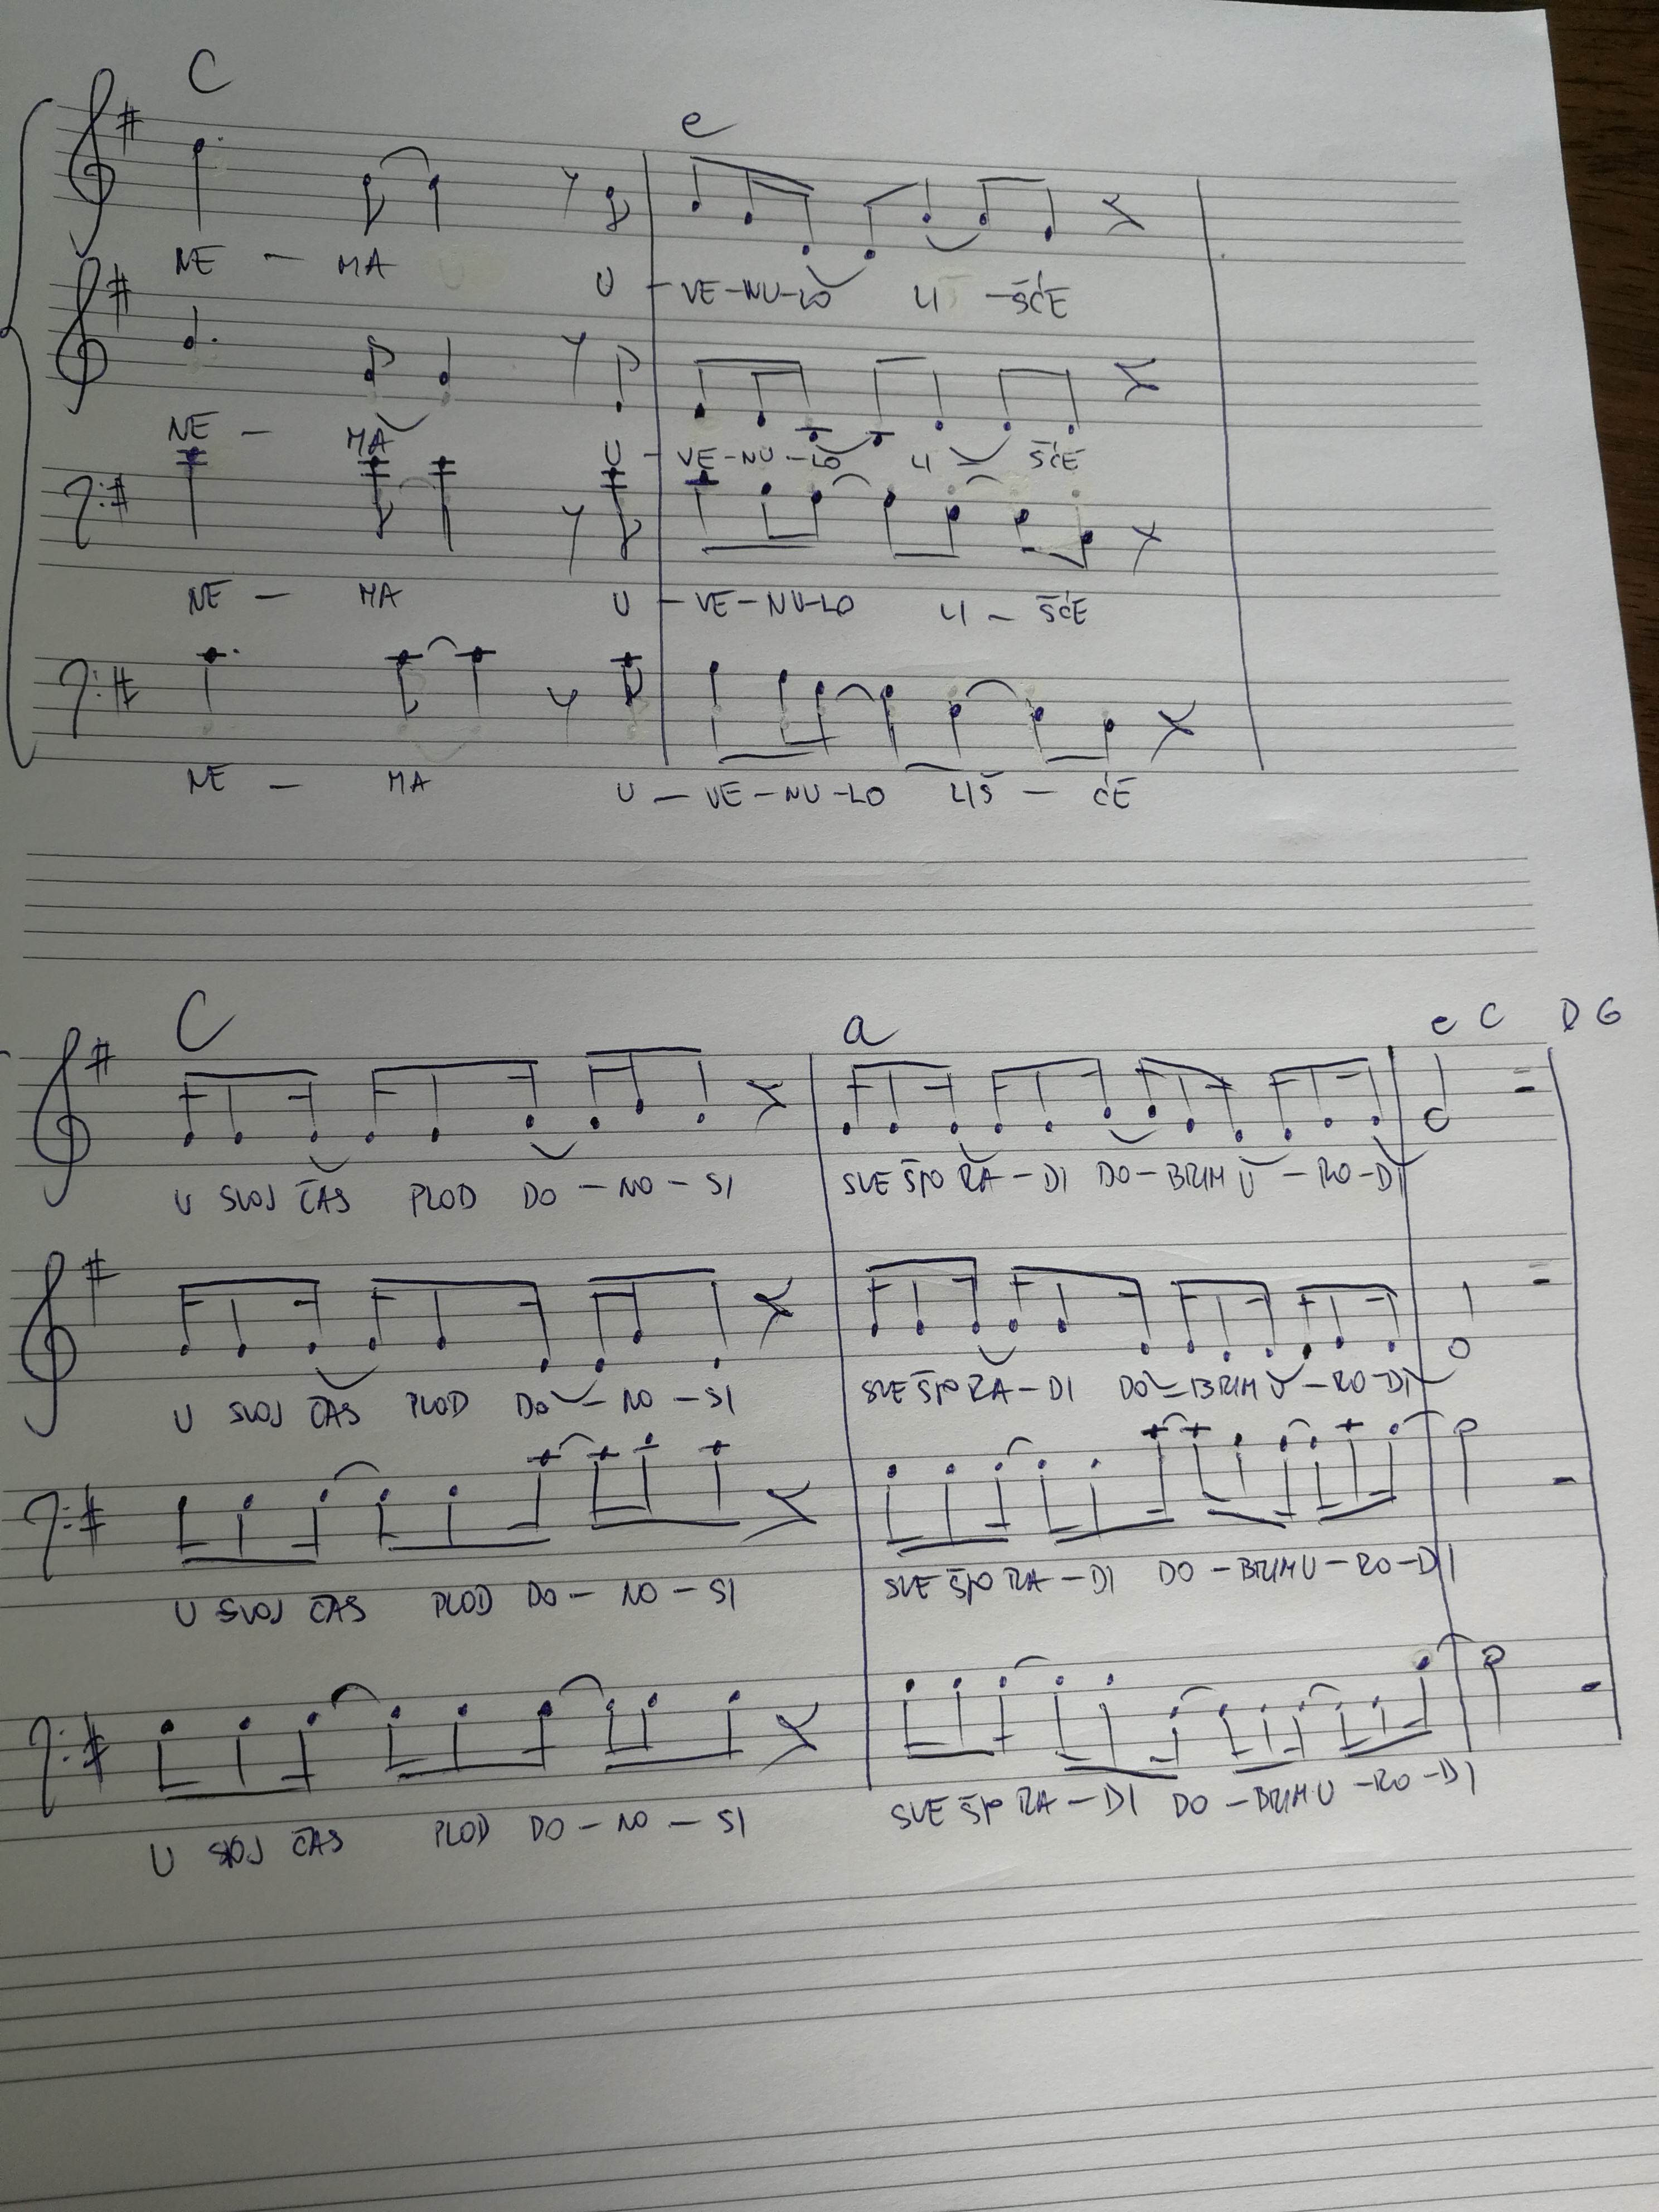 C e
NE - MA U - VE-NU-LO LI - ŠĆE
NE - MA U - VE-NU-LO LI - ŠĆE
NE - MA U - VE-NU-LO LI - ŠĆE
NE - MA U - VE-NU-LO LIŠ - ĆE
C a e C D G
U SVOJ ČAS PLOD DO - NO - SI SVE ŠTO RA - DI DO - BRIM U - RO - DI
U SVOJ ČAS PLOD DO - NO - SI SVE ŠTO RA - DI DO - BRIM U - RO - DI
U SVOJ ČAS PLOD DO - NO - SI SVE ŠTO RA - DI DO - BRIM U - RO - DI
U SVOJ ČAS PLOD DO - NO - SI SVE ŠTO RA - DI DO - BRIM U - RO - DI